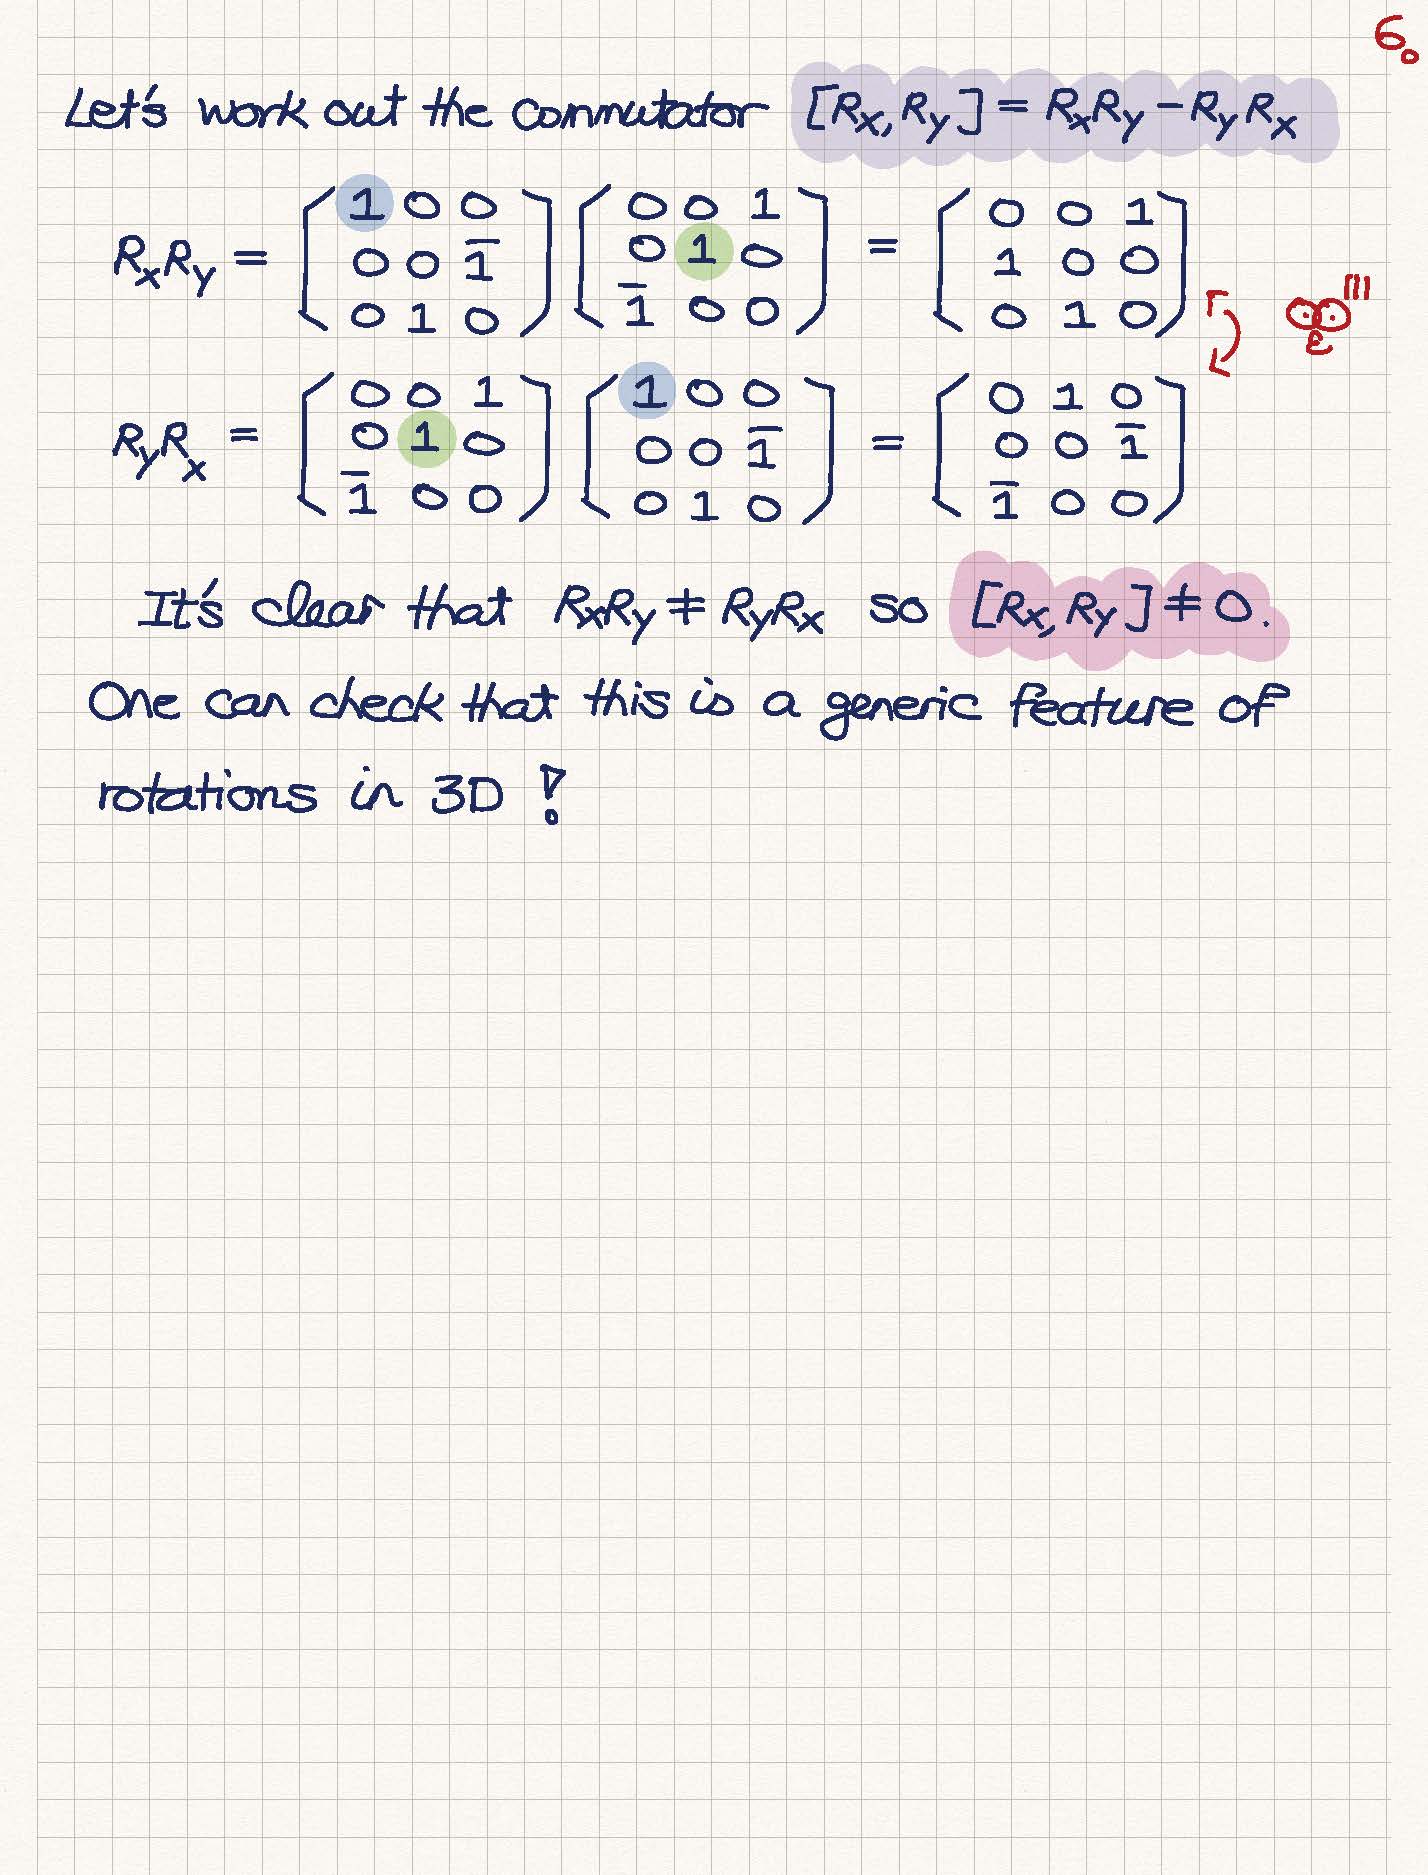 6.
Let's work out the commutator [Rx, Ry] = RxRy − RyRx
RxRy = (1 0 0 / 0 0 1̅ / 0 1 0) (0 0 1 / 0 1 0 / 1̅ 0 0) = (0 0 1 / 1 0 0 / 0 1 0)
RyRx = (0 0 1 / 0 1 0 / 1̅ 0 0) (1 0 0 / 0 0 1̅ / 0 1 0) = (0 1 0 / 0 0 1̅ / 1̅ 0 0)
It's clear that RxRy ≠ RyRx so [Rx, Ry] ≠ 0.
One can check that this is a generic feature of
rotations in 3D !